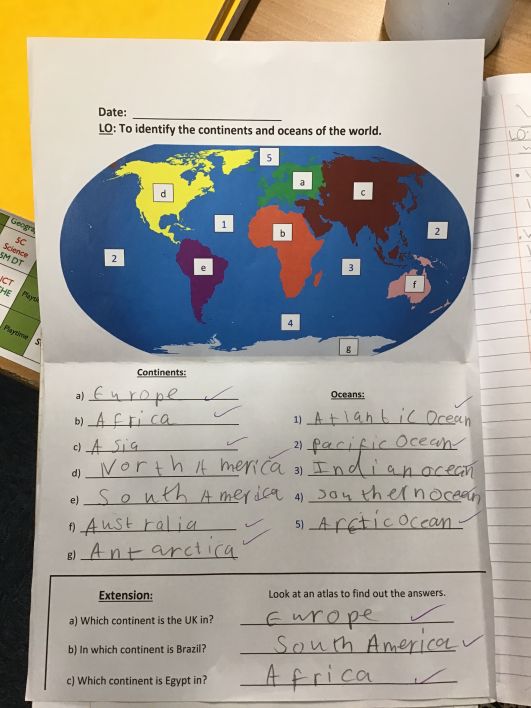 Date:
LO: To identify the continents and oceans of the world.
5
a
d
c
1
b
2
2
e
3
f
4
g
Continents:
a) Europe
b) Africa
c) Asia
d) North America
e) South America
f) Australia
g) Antarctica
Oceans:
1) Atlantic Ocean
2) pacific Ocean
3) Indian ocean
4) Southern ocean
5) Arctic Ocean
Extension:
Look at an atlas to find out the answers.
a) Which continent is the UK in? Europe
b) In which continent is Brazil? South America
c) Which continent is Egypt in? Africa
SC
Science
SM DT
ICT
Playtime
LO